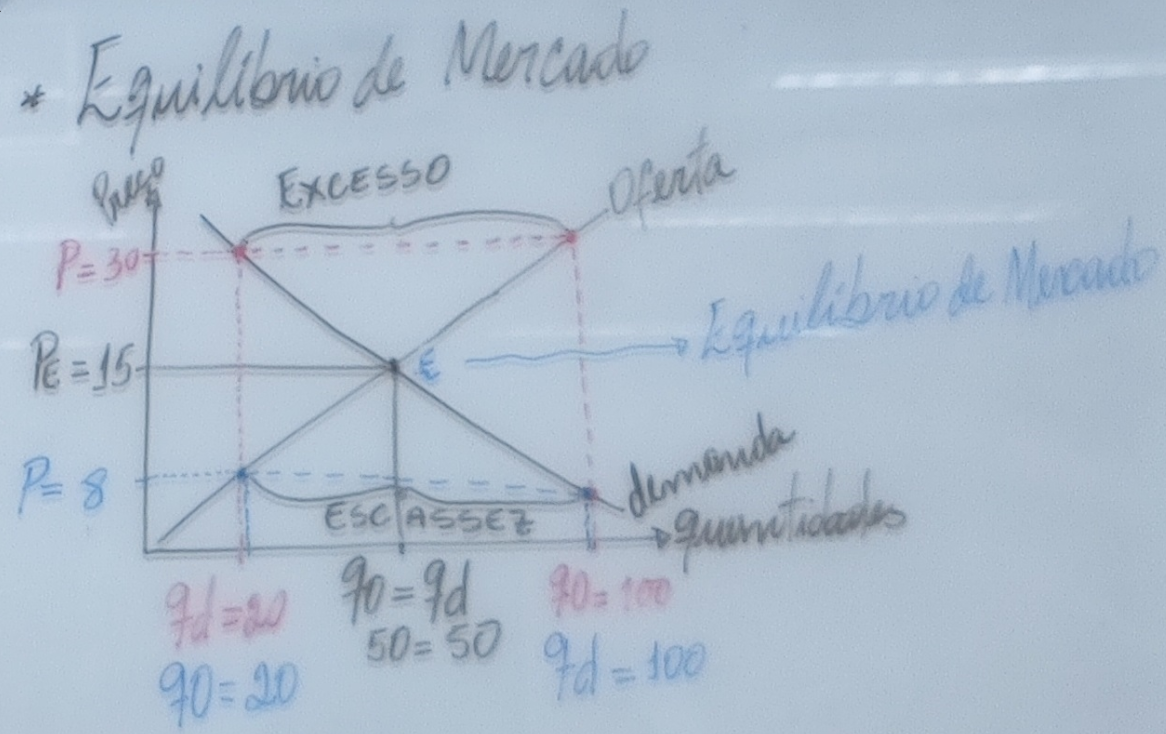 * Equilíbrio de Mercado
Preço
EXCESSO
Oferta
P=30
Equilíbrio de Mercado
PE=15
E
P=8
demanda
ESCASSEZ
quantidades
qd=20
qo=qd
qo=100
50=50
qo=20
qd=100